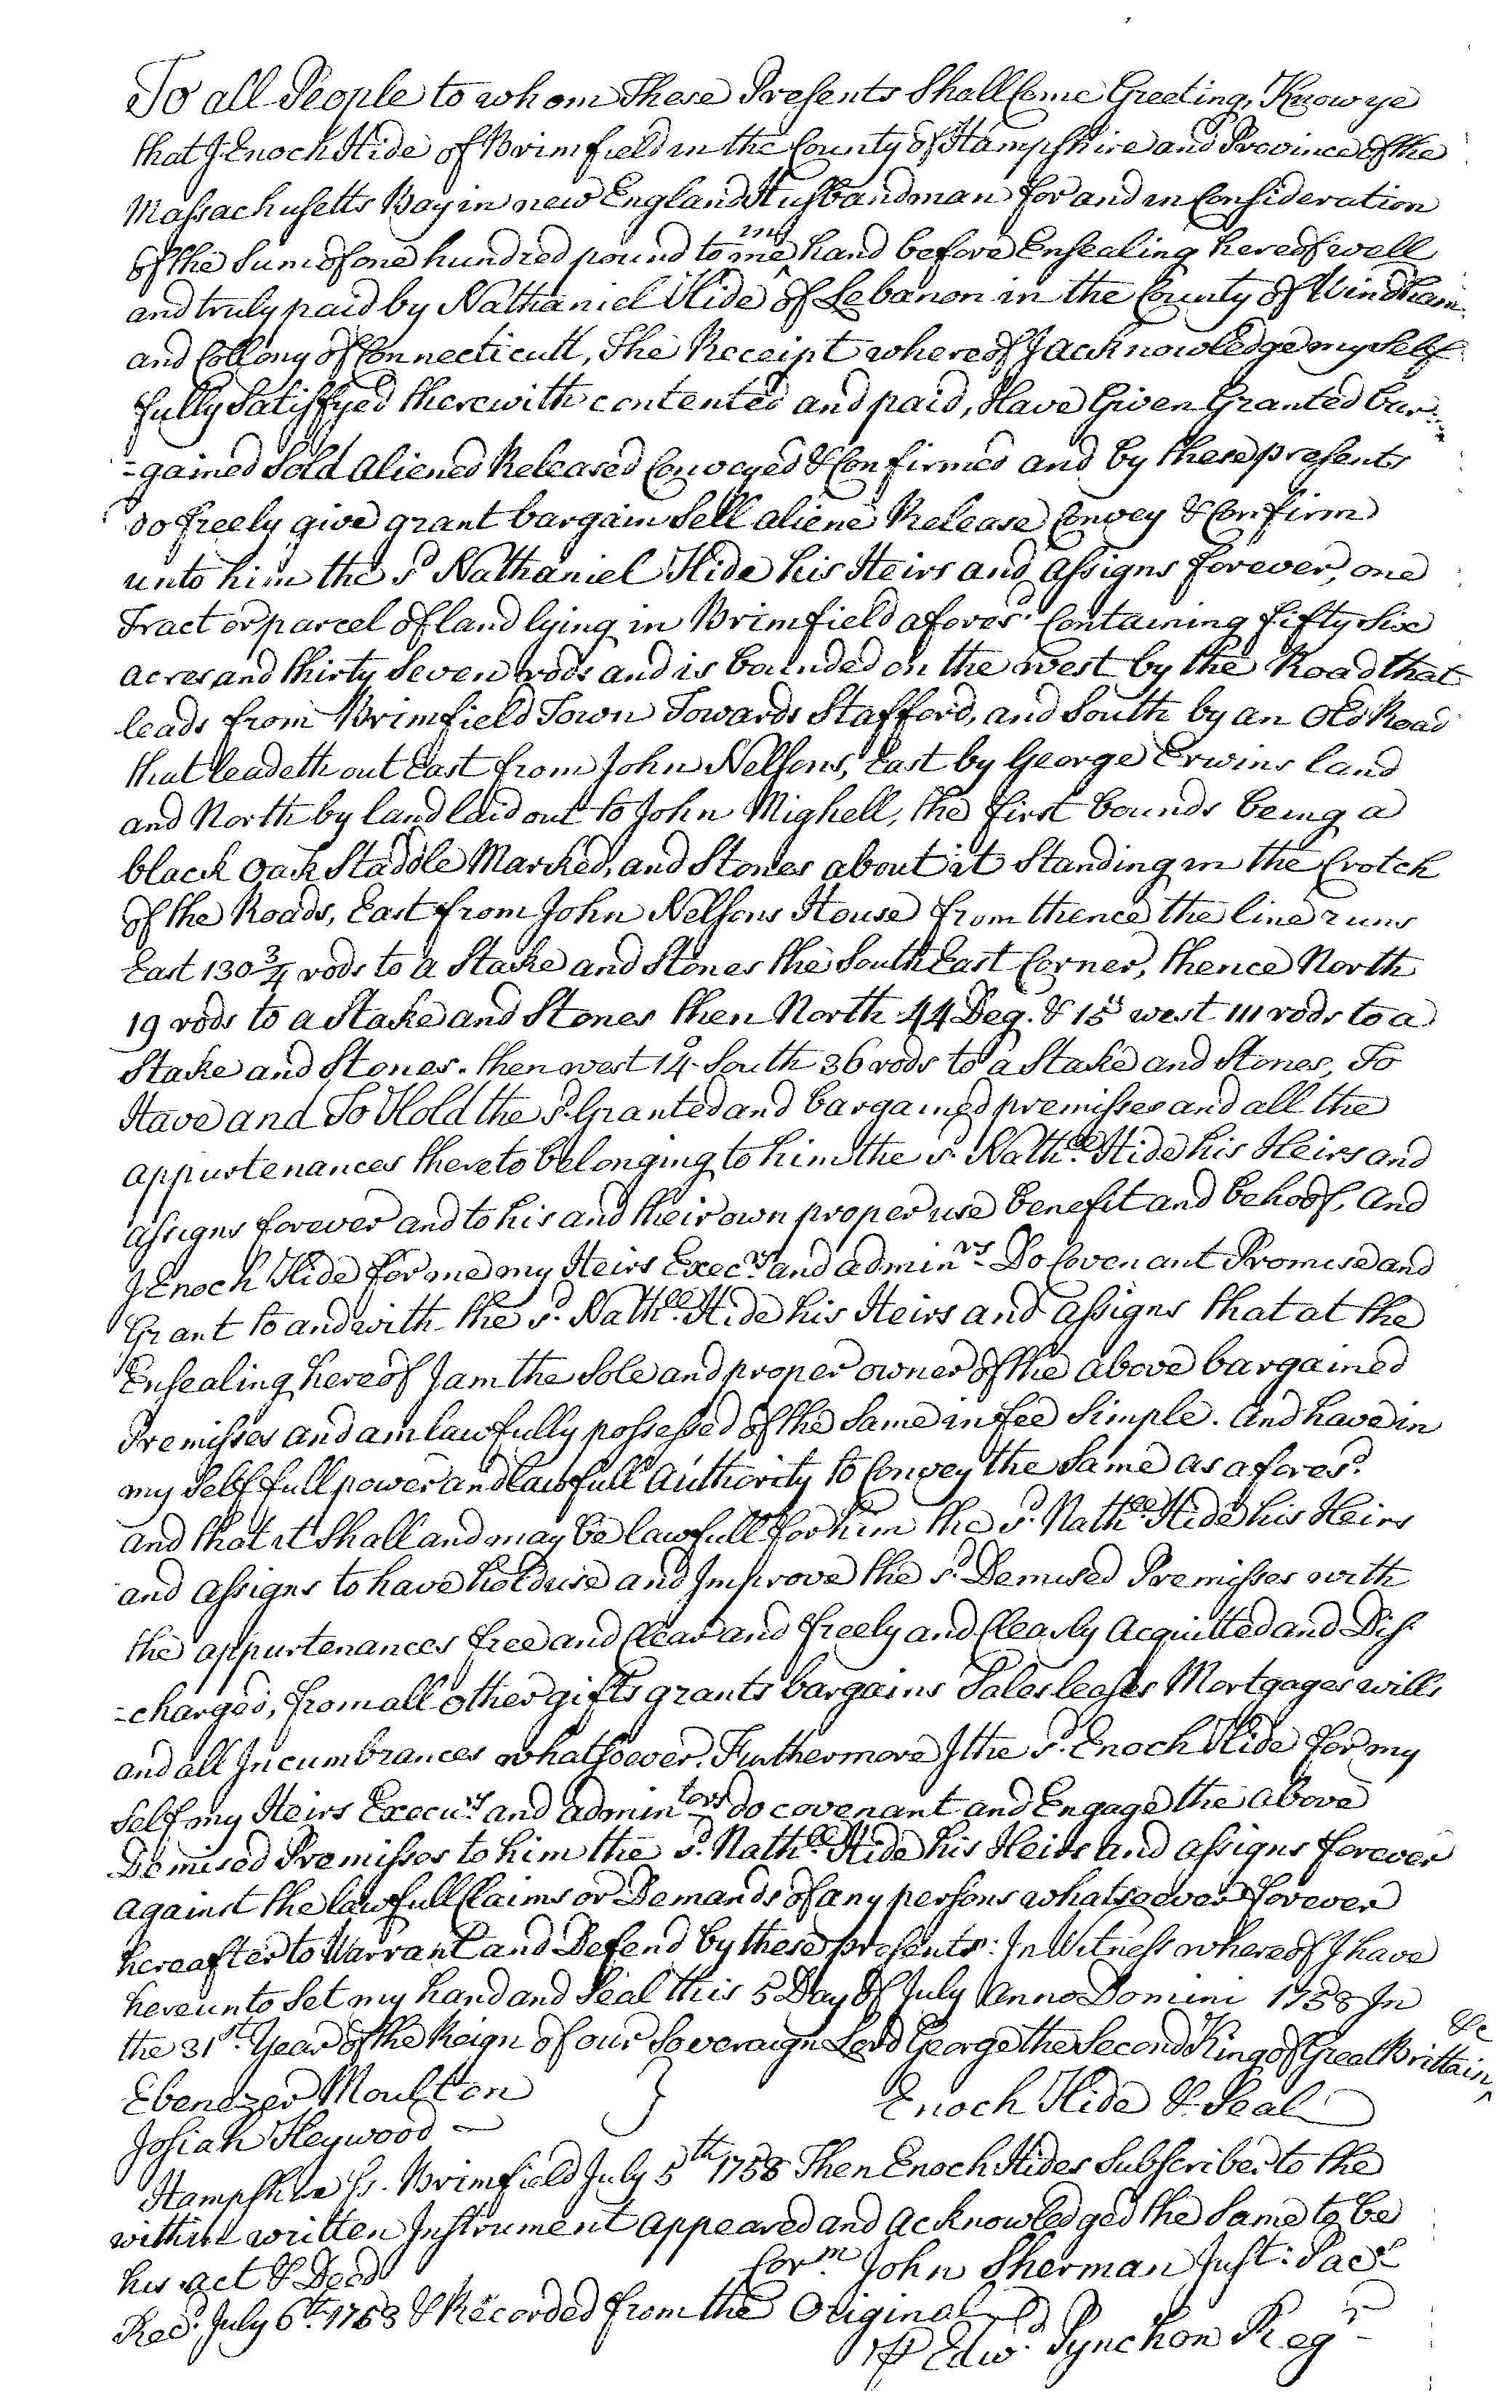 To all People to whom These Presents Shall Come Greeting, Know ye
that I Enoch Hide of Brimfield in the County of Hampshire and Province of the
Massachusetts Bay in new England Husbandman for and in Consideration
of the Sum of one hundred pound to me in hand before Ensealing hereof well
and truly paid by Nathaniel Hide of Lebanon in the County of Windham
and Collony of Connecticutt, The Receipt whereof I acknowledge my Self
fully Satisfyed therewith contented and paid, Have Given Granted bar=
=gained Sold aliened Released Conveyed & Confirmed and by these presents
do freely give grant bargain Sell aliene Release Convey & Confirm
unto him the sd Nathaniel Hide his Heirs and assigns forever, one
Tract or parcel of land lying in Brimfield aforesd. Containing fifty Six
acres and thirty Seven rods and is bounded on the west by the Road that
leads from Brimfield Town Towards Stafford, and South by an Old Road
that leadeth out East from John Nelsons, East by George Erwins land
and North by land laid out to John Mighell, the first bounds being a
black Oak Staddle Marked, and Stones about it Standing in the Crotch
of the Roads, East from John Nelsons House from thence the line runs
East 130 3/4 rods to a Stake and Stones the South East Corner, thence North
19 rods to a Stake and Stones then North 44 Deg. & 15 west 111 rods to a
Stake and Stones. then west 14° South 36 rods to a Stake and Stones, To
Have and To Hold the sd. Granted and bargained premisses and all the
appurtenances thereto belonging to him the sd. Nathll. Hide his Heirs and
assigns forever and to his and their own proper use benefit and behoof, And
I Enoch Hide for me my Heirs Execrs. and adminrs. Do Covenant Promise and
Grant to and with the sd. Nathll. Hide his Heirs and assigns that at the
Ensealing hereof I am the Sole and proper owner of the above bargained
Premisses and am lawfully possessed of the Same in fee Simple. And have in
my Self full power and lawfull Authority to Convey the Same as aforesd.
and that it Shall and may be lawfull for him the sd. Nathll. Hide his Heirs
and assigns to have hold use and Improve the sd. Demised Premisses with
the appurtenances free and Clear and freely and Clearly Acquitted and Dis=
=charged, from all other gifts grants bargains Sales leases Mortgages wills
and all Incumbrances whatsoever. Furthermore I the sd. Enoch Hide for my
self my Heirs Execurs. and admintors. do covenant and Engage the above
Demised Premisses to him the sd. Nathll. Hide his Heirs and assigns forever
against the lawfull Claims or Demands of any persons whatsoever forever
hereafter to Warrant and Defend by these presents: In Witness whereof I have
hereunto Set my hand and Seal this 5 Day of July Anno Domini 1758 In
the 31st. Year of the Reign of our Soveraign Lord George the Second King of Great Brittain &c
Ebenezer Moulton } Enoch Hide & Seal
Josiah Heywood
Hampshire Ss. Brimfield July 5th 1758 Then Enoch Hides Subscriber to the
within written Instrument appeared and acknowledged the Same to be
his act & Deed Corm. John Sherman Just: Pacs
Recd. July 6th. 1758 & Recorded from the Original
⅌ Edwd. Pynchon Regr